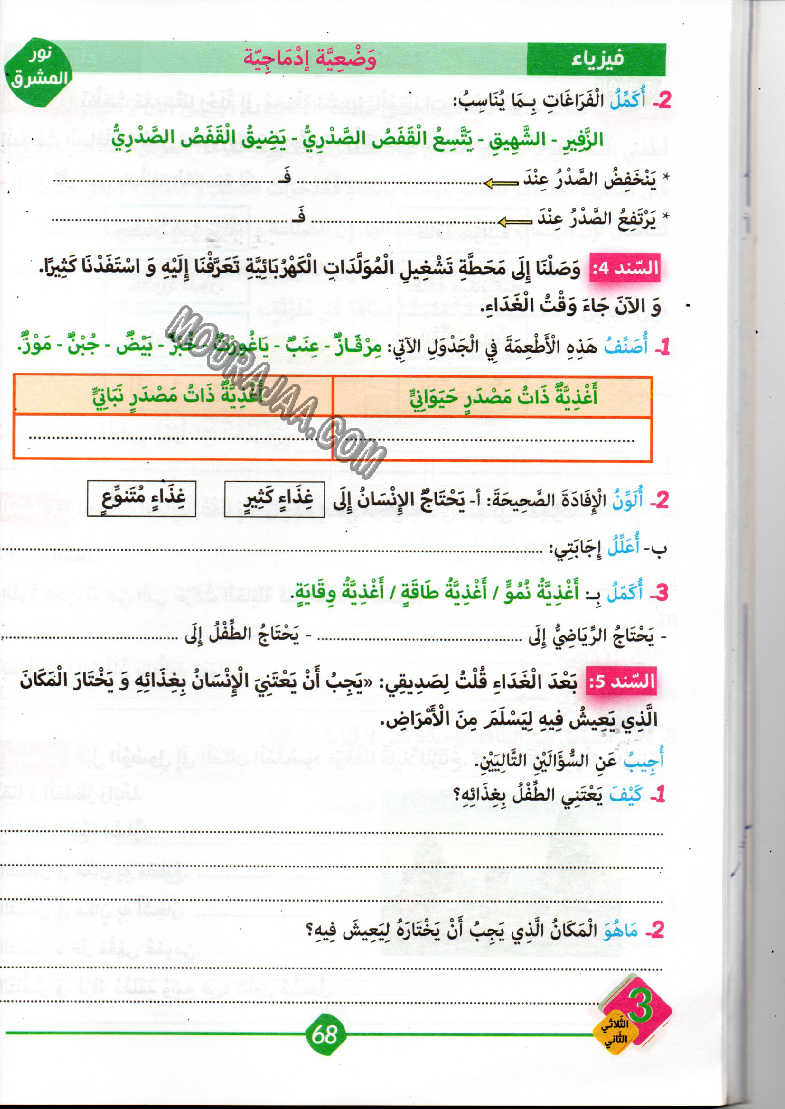 نور المشرق
فيزياء
وَضْعِيَّة إدْمَاجِيّة
2- أُكَمِّلُ الْفَرَاغَاتِ بِمَا يُنَاسِبُ:
الزَّفِيرِ - الشَّهِيقِ - يَتَّسِعُ الْقَفَصُ الصَّدْرِيُّ - يَضِيقُ الْقَفَصُ الصَّدْرِيُّ
* يَنْخَفِضُ الصَّدْرُ عِنْدَ ........................ فَـ ........................
* يَرْتَفِعُ الصَّدْرُ عِنْدَ ........................ فَـ ........................
السّند 4: وَصَلْنَا إِلَى مَحَطَّةِ تَشْغِيلِ الْمُوَلِّدَاتِ الْكَهْرُبَائِيَّةِ تَعَرَّفْنَا إِلَيْهِ وَ اسْتَفَدْنَا كَثِيرًا.
وَ الآنَ جَاءَ وَقْتُ الْغَدَاءِ.
1- أُصَنِّفُ هَذِهِ الأَطْعِمَةَ فِي الْجَدْوَلِ الآتِي: مِرْقَازٌ - عِنَبٌ - يَاغُورتٌ - خُبْزٌ - بَيْضٌ - جُبْنٌ - مَوْزٌ.
أَغْذِيَّةٌ ذَاتُ مَصْدَرٍ حَيَوَانِيٍّ
أَغْذِيَّةٌ ذَاتُ مَصْدَرٍ نَبَاتِيٍّ
2- أُلَوِّنُ الْإِفَادَةَ الصَّحِيحَةَ: أ- يَحْتَاجُ الإِنْسَانُ إِلَى غِذَاءٍ كَثِيرٍ غِذَاءٍ مُتَنَوِّعٍ
ب- أُعَلِّلُ إِجَابَتِي: ........................
3- أُكَمِّلُ بِـ: أَغْذِيَّةُ نُمُوٍّ / أَغْذِيَّةُ طَاقَةٍ / أَغْذِيَّةُ وِقَايَةٍ.
- يَحْتَاجُ الرِّيَاضِيُّ إِلَى ........................ - يَحْتَاجُ الطِّفْلُ إِلَى ........................
السّند 5: بَعْدَ الْغَدَاءِ قُلْتُ لِصَدِيقِي: «يَجِبُ أَنْ يَعْتَنِيَ الْإِنْسَانُ بِغِذَائِهِ وَ يَخْتَارَ الْمَكَانَ
الَّذِي يَعِيشُ فِيهِ لِيَسْلَمَ مِنَ الْأَمْرَاضِ.
أُجِيبُ عَنِ السُّؤَالَيْنِ التَّالِيَيْنِ.
1- كَيْفَ يَعْتَنِي الطِّفْلُ بِغِذَائِهِ؟
2- مَاهُوَ الْمَكَانُ الَّذِي يَجِبُ أَنْ يَخْتَارَهُ لِيَعِيشَ فِيهِ؟
3
الثّلاثي الثّاني
68
MOURAJAA.COM